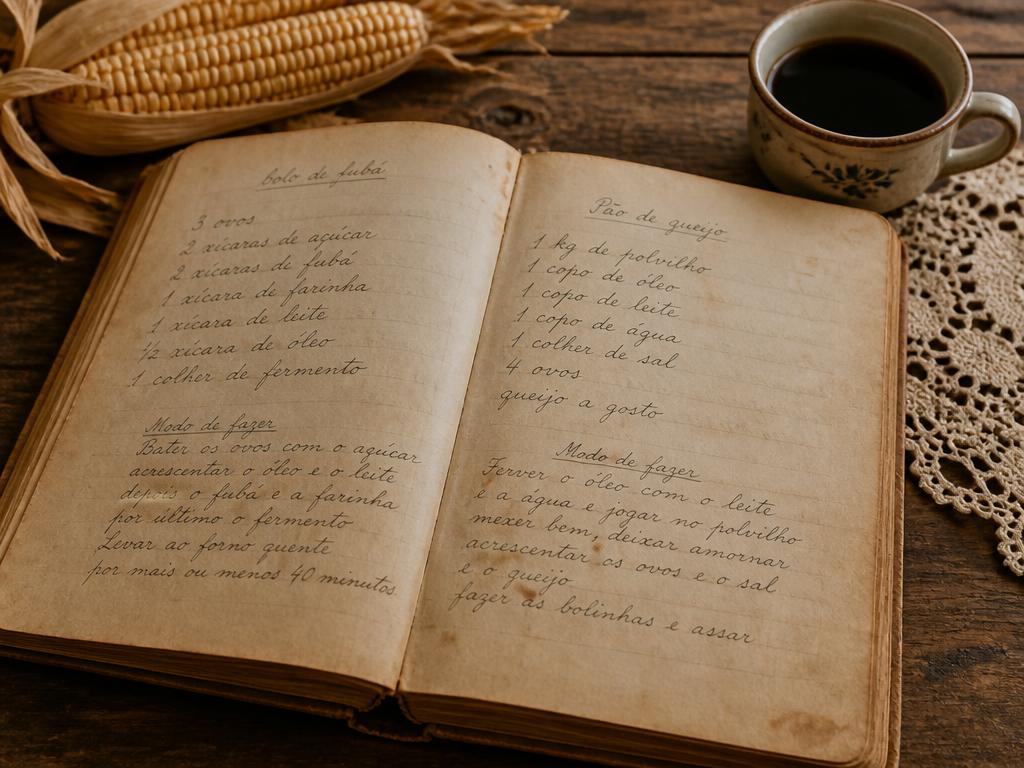 bolo de fubá
3 ovos
2 xícaras de açúcar
2 xícaras de fubá
1 xícara de farinha
1 xícara de leite
1/2 xícara de óleo
1 colher de fermento
Modo de fazer
Bater os ovos com o açúcar
acrescentar o óleo e o leite
depois o fubá e a farinha
por último o fermento
Levar ao forno quente
por mais ou menos 40 minutos.
Pão de queijo
1 kg de polvilho
1 copo de óleo
1 copo de leite
1 copo de água
1 colher de sal
4 ovos
queijo a gosto
Modo de fazer
Ferver o óleo com o leite
e a água e jogar no polvilho
mexer bem, deixar amornar
acrescentar os ovos e o sal
e o queijo
fazer as bolinhas e assar